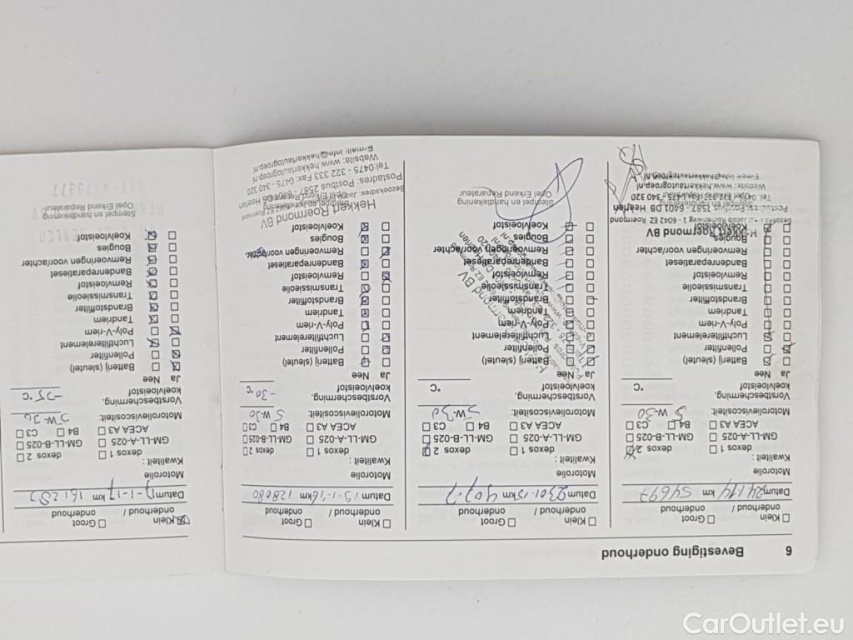 6 Bevestiging onderhoud
☐ Klein onderhoud / ☐ Groot onderhoud
Datum 24114 km 54697
Motorolie
Kwaliteit :
☐ dexos 1 ☒ dexos 2
☐ GM-LL-A-025 ☐ GM-LL-B-025
☐ ACEA A3 ☐ B4 ☐ C3
Motorolieviscositeit: 5W-30
Vorstbescherming. koelvloeistof °C
Ja Nee
Batterij (sleutel)
Pollenfilter
Luchtfilterelement
Poly-V-riem
Tandriem
Brandstoffilter
Transmissieolie
Remvloeistof
Bandenreparatieset
Remvoeringen voor/achter
Bougies
Koelvloeistof
☐ Klein onderhoud / ☐ Groot onderhoud
Datum km
Motorolie
Kwaliteit :
☐ dexos 1 ☒ dexos 2
☐ GM-LL-A-025 ☐ GM-LL-B-025
☐ ACEA A3 ☐ B4 ☐ C3
Motorolieviscositeit: 5W-30
Vorstbescherming. koelvloeistof °C
Ja Nee
Batterij (sleutel)
Pollenfilter
Luchtfilterelement
Poly-V-riem
Tandriem
Brandstoffilter
Transmissieolie
Remvloeistof
Bandenreparatieset
Remvoeringen voor/achter
Bougies
Koelvloeistof
Stempel en handtekening
Opel Erkend Reparateur
☐ Klein onderhoud / ☐ Groot onderhoud
Datum 13-1-16 km 128080
Motorolie
Kwaliteit :
☐ dexos 1 ☒ dexos 2
☐ GM-LL-A-025 ☐ GM-LL-B-025
☐ ACEA A3 ☐ B4 ☐ C3
Motorolieviscositeit: 5W-30
Vorstbescherming. koelvloeistof -30 °C
Ja Nee
Batterij (sleutel)
Pollenfilter
Luchtfilterelement
Poly-V-riem
Tandriem
Brandstoffilter
Transmissieolie
Remvloeistof
Bandenreparatieset
Remvoeringen voor/achter
Bougies
Koelvloeistof
Hekkert Roermond BV
Tel:0475 - 322 333 Fax: 0475 - 340 320
Website: www.hekkertautogroep.nl
E-mail: info@hekkertautogroep.nl
☒ Klein onderhoud / ☐ Groot onderhoud
Datum km
Motorolie
Kwaliteit :
☐ dexos 1 ☐ dexos 2
☐ GM-LL-A-025 ☐ GM-LL-B-025
☐ ACEA A3 ☐ B4 ☐ C3
Motorolieviscositeit: 5W-30
Vorstbescherming. koelvloeistof -35 °C
Ja Nee
Batterij (sleutel)
Pollenfilter
Luchtfilterelement
Poly-V-riem
Tandriem
Brandstoffilter
Transmissieolie
Remvloeistof
Bandenreparatieset
Remvoeringen voor/achter
Bougies
Koelvloeistof
Stempel en handtekening
Opel Erkend Reparateur
CarOutlet.eu